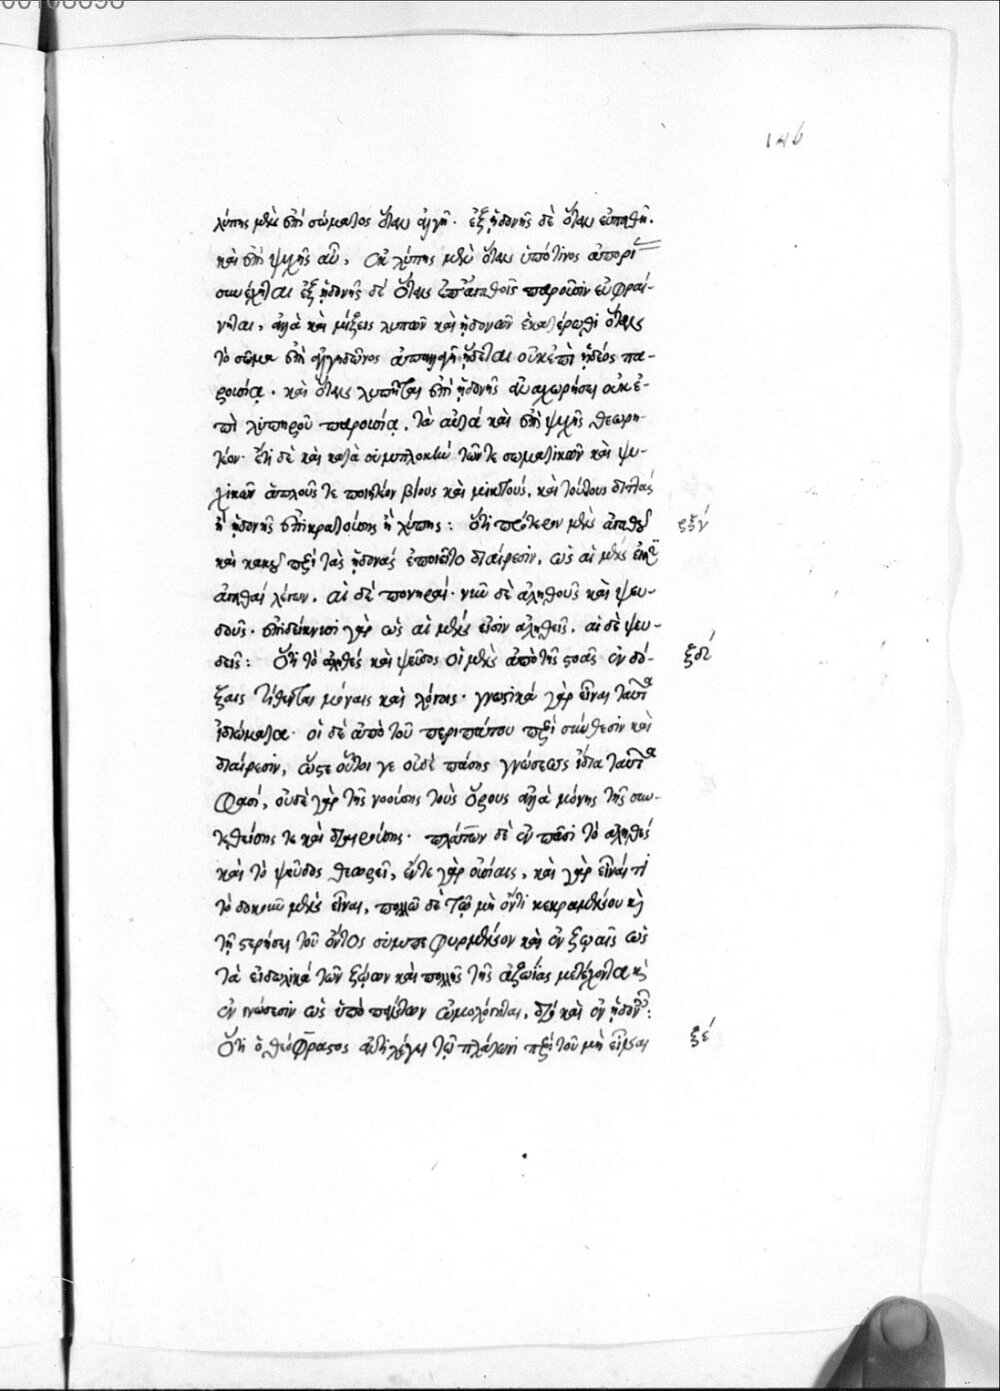 λύπης μὲν ἐπὶ σώματος ὅταν ἀλγῇ. ἐξ ἡδονῆς δὲ ὅταν εὐπαθῇ.
καὶ ἐπὶ ψυχῆς αὖ, ἐκ λύπης μὲν ὅταν ὑπό τινος
συνέχηται ἐξ ἡδονῆς δέ ὅταν ἐπ' ἀγαθοῖς παροῦσιν εὐφραί-
νηται, ἀλλὰ καὶ μίξεις λυπῶν καὶ ἡδονῶν ἑκατέρωθι ὅταν
τὸ σῶμα ἐπὶ ἀλγηδῶνος ἀπαλλαγῇ ἥδεται οὐκ ἐπὶ ἡδέος πα-
ρουσίᾳ. καὶ ὅταν λυπῆται ἐπὶ ἡδονῆς ἀναχωρήσει οὐκ ἐ-
πὶ λυπηροῦ παρουσίᾳ, τὰ αὐτά καὶ ἐπὶ ψυχῆς θεωρη-
τέον. ἔτι δὲ καὶ κατὰ συμπλοκὴν τῶν τε σωματικῶν καὶ ψυ-
χικῶν ἁπλοῦς τε ποιητέον βίους καὶ μικτούς, καὶ τούτους διττάς
ἢ ἡδονῆς ἐπικρατούσης ἢ λύπης: Ὅτι πρότερον μὲν ἀγαθοῦ
καὶ κακοῦ περὶ τὰς ἡδονάς ἐποιεῖτο διαίρεσιν, ὡς αἱ μέν
ἀγαθαί λέγων, αἱ δέ πονηραί. νῦν δὲ ἀληθοῦς καὶ ψευ-
δοῦς. ἐπιδείκνυσι γὰρ ὡς αἱ μέν εἰσιν ἀληθεῖς, αἱ δὲ ψευ-
δεῖς: Ὅτι τὸ ἀληθές καὶ ψεῦδος οἱ μὲν ἀπὸ τῆς στοᾶς ἐν δό-
ξαις τίθενται μόναις καὶ λόγοις. γνωστικά γὰρ εἶναι ταῦτα
ἰδιώματα. οἱ δὲ ἀπὸ τοῦ περιπάτου περὶ σύνθεσιν καὶ
διαίρεσιν, ὥστε οὗτοι γε οὐδὲ πάσης γνώσεως ἴδια ταῦτα
φασί, οὐδὲ γὰρ τῆς νοούσης τοὺς ὅρους ἀλλὰ μόνης τῆς συν-
τεθείσης τε καὶ διαιρούσης. πλάτων δὲ ἐν πᾶσι τὸ ἀληθές
καὶ τὸ ψεῦδος θεωρεῖ, ἔν τε γὰρ οὐσίαις, καὶ γὰρ εἶναί τι
τὸ δοκοῦν μὲν εἶναι, πολλῶ δὲ τῶ μὴ ὄντι κεκραμένον κỳ
τῇ στερήσει τοῦ ὄντος συμπεφυρμένον καὶ ἐν ζῴαις ὡς
τὰ εἰδωλικά τῶν ζῴων καὶ πολλῆς τῆς ἀζωΐας μετέχοντα κỳ
ἐν γνώσεσιν ὡς ὑπὸ πάντων ὡμολόγηται, διὸ καὶ ἐν ἡδοναῖς:
Ὅτι ὁ θεόφραστος ἀντιλέγει τῶ πλάτωνι περὶ τοῦ μὴ εἶναι
ξδ΄
ξε΄